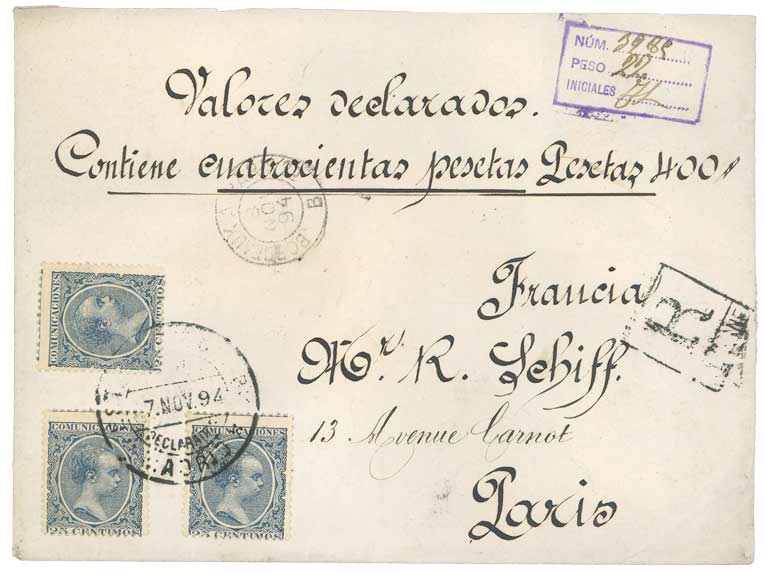 NÚM.
PESO
INICIALES
Valores declarados.
Contiene cuatrocientas pesetas Pesetas 400
B
94
BORDEAUX
Francia
R
Mr. R. Schiff.
13 Avenue Carnot
Paris
COMUNICACIONES
25 CENTIMOS
7.NOV.94
DECLARADOS
MADRID
COMUNICACIONES
25 CENTIMOS
COMUNICACIONES
25 CENTIMOS